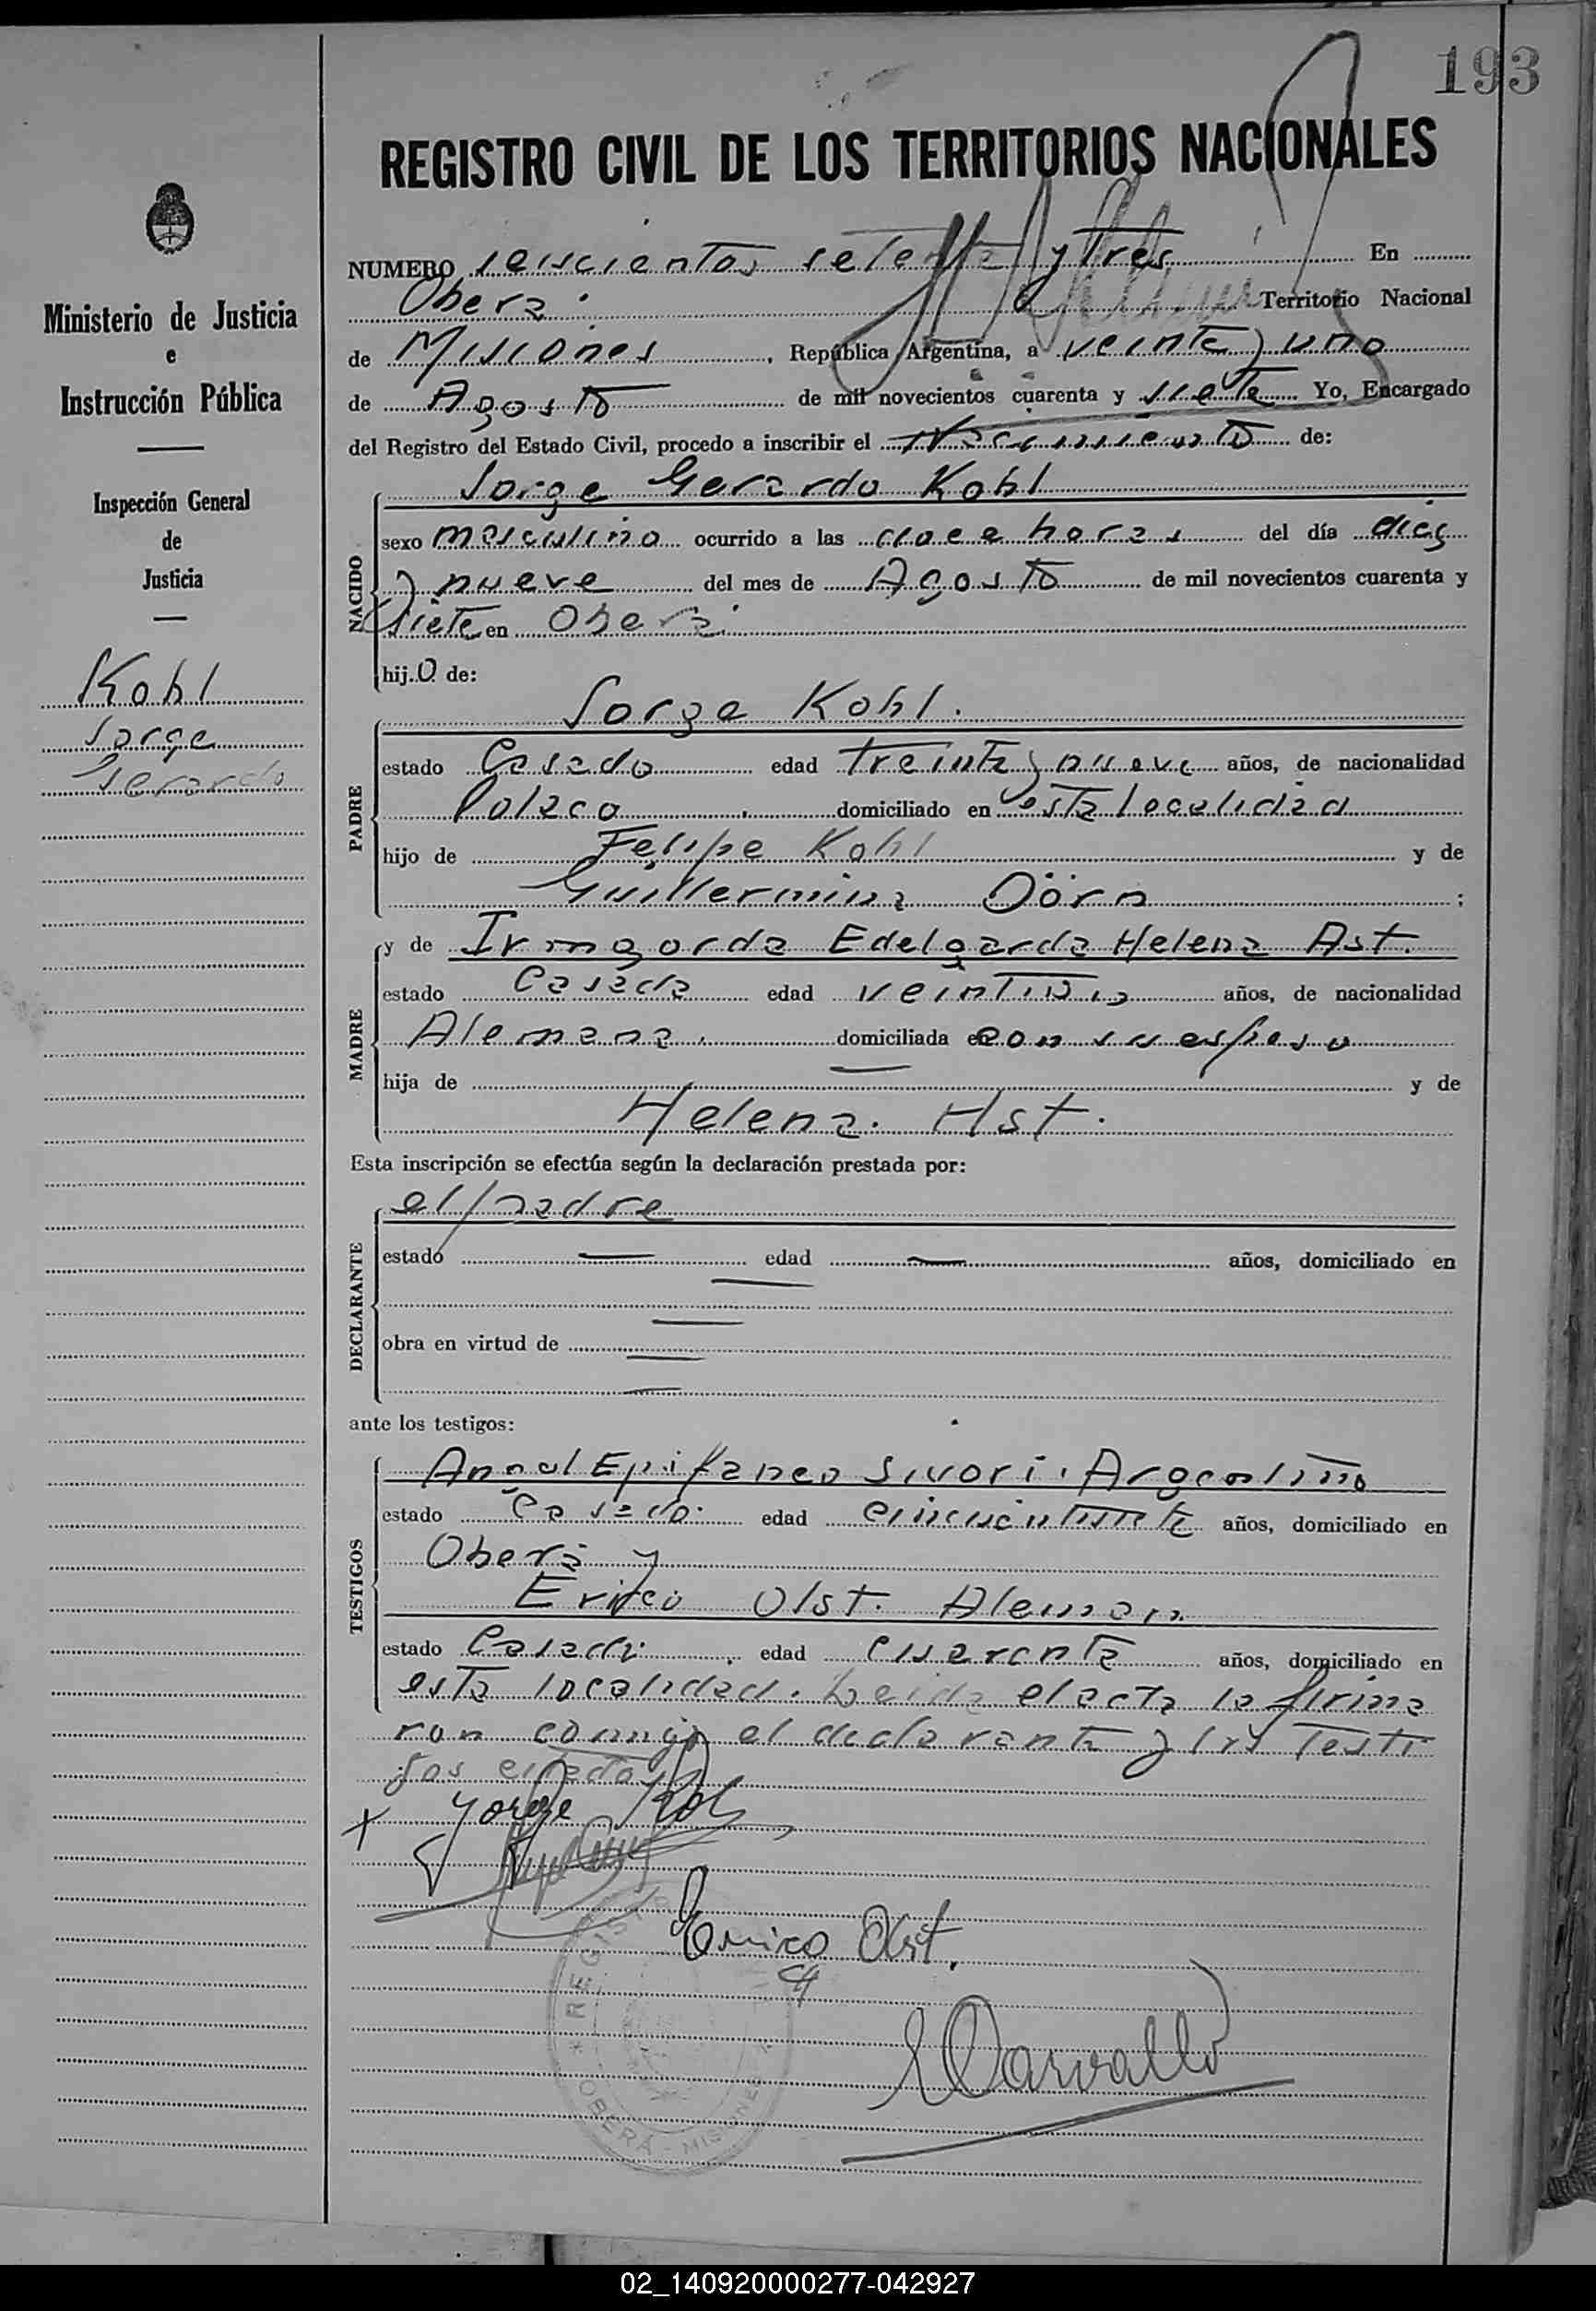 193
REGISTRO CIVIL DE LOS TERRITORIOS NACIONALES
Ministerio de Justicia
e
Instrucción Pública
Inspección General
de
Justicia
Kohl
Jorge
Gerardo
NUMERO seiscientos setenta y tres En
Oberá Territorio Nacional
de Misiones, República Argentina, a veinte y uno
de Agosto de mil novecientos cuarenta y siete Yo, Encargado
del Registro del Estado Civil, procedo a inscribir el Nacimiento de:
NACIDO
Jorge Gerardo Kohl
sexo masculino ocurrido a las doce horas del día diez
y nueve del mes de Agosto de mil novecientos cuarenta y
siete en Oberá
hij.o de:
PADRE
Jorge Kohl.
estado Casado edad treinta y nueve años, de nacionalidad
Polaca domiciliado en esta localidad
hijo de Felipe Kohl y de
Guillermina Dörn ;
MADRE
y de Irmgorda Edelgarda Helena Ast.
estado Casada edad años, de nacionalidad
Alemana. domiciliada con su esposo
hija de — y de
Helena. Ast.
Esta inscripción se efectúa según la declaración prestada por:
DECLARANTE
el padre
estado — edad — años, domiciliado en
obra en virtud de
ante los testigos:
TESTIGOS
Angel Epifaneo Sivori. Argentino
estado Casado. edad años, domiciliado en
Oberá y
Olst. Aleman
estado Casado. edad cuarenta años, domiciliado en
esta localidad. Leida el acta la firma
ron conmigo el declarante y los testi
gos citados
x Jorge Kohl
Enrico Olst.
Carvallo
REGISTRO
OBERÁ - MISIONES
02_140920000277-042927